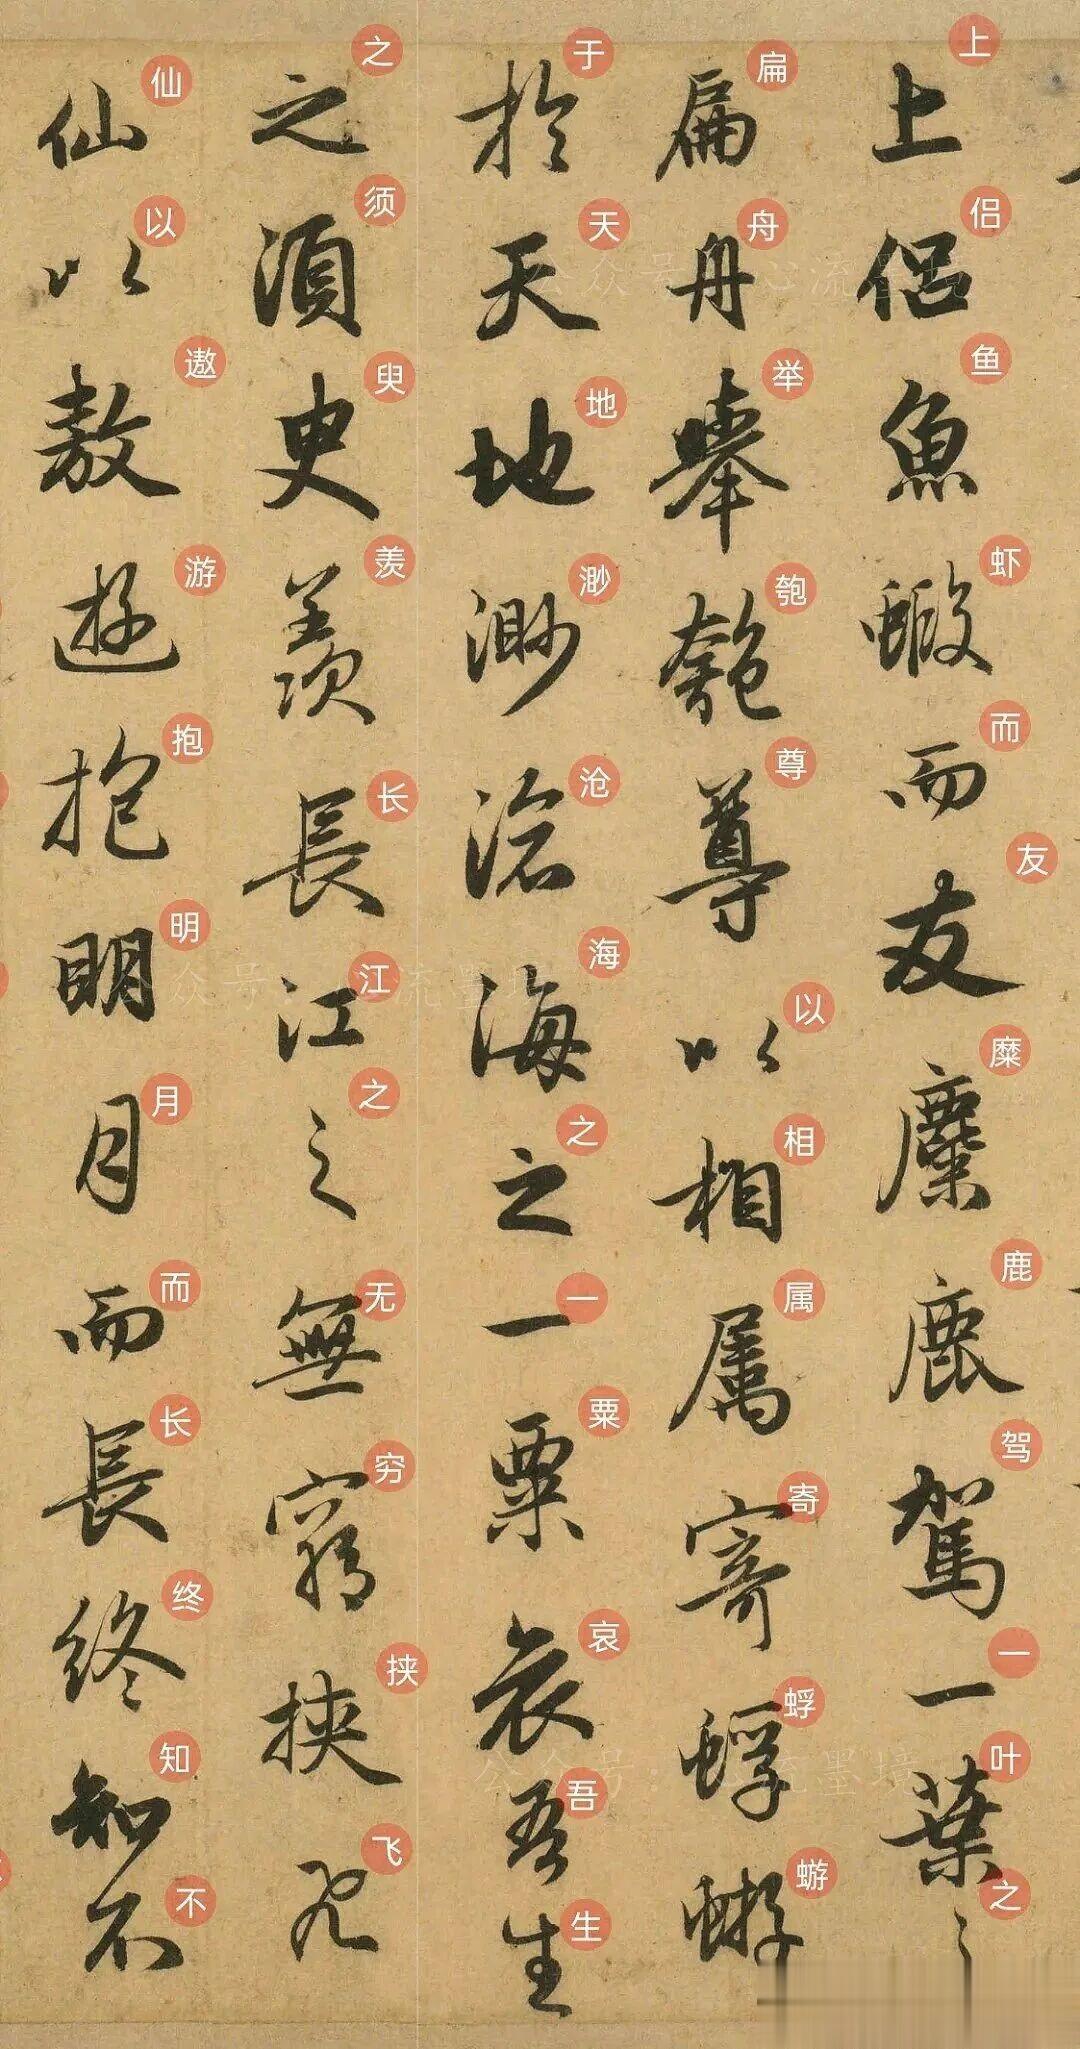 上侣魚蝦而友麋鹿駕一葉之
上侣鱼虾而友糜鹿驾一叶之
扁舟舉匏尊以相属寄蜉蝣
扁舟举匏尊以相属寄蜉蝣
於天地渺滄海之一粟哀吾生
于天地渺沧海之一粟哀吾生
之須臾羨長江之無窮挾飛
之须臾羡长江之无穷挟飞
仙以敖遊抱明月而長終知不
仙以遨游抱明月而长终知不